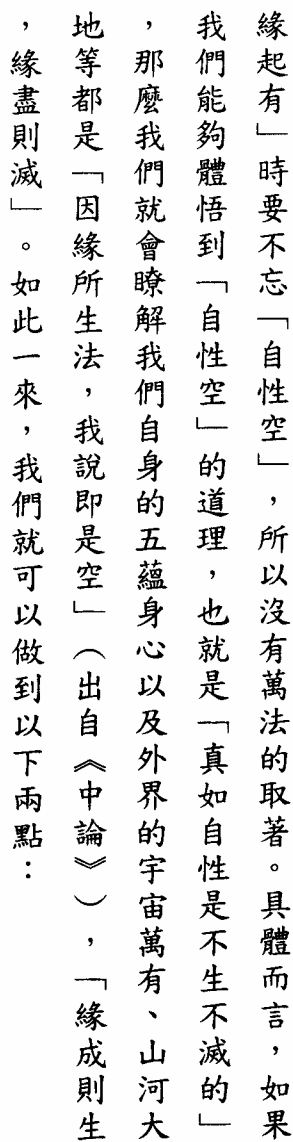 緣起有」時要不忘「自性空」，所以沒有萬法的取著。具體而言，如果
我們能夠體悟到「自性空」的道理，也就是「真如自性是不生不滅的」
，那麼我們就會瞭解我們自身的五蘊身心以及外界的宇宙萬有、山河大
地等都是「因緣所生法，我說即是空」（出自《中論》），「緣成則生
，緣盡則滅」。如此一來，我們就可以做到以下兩點：